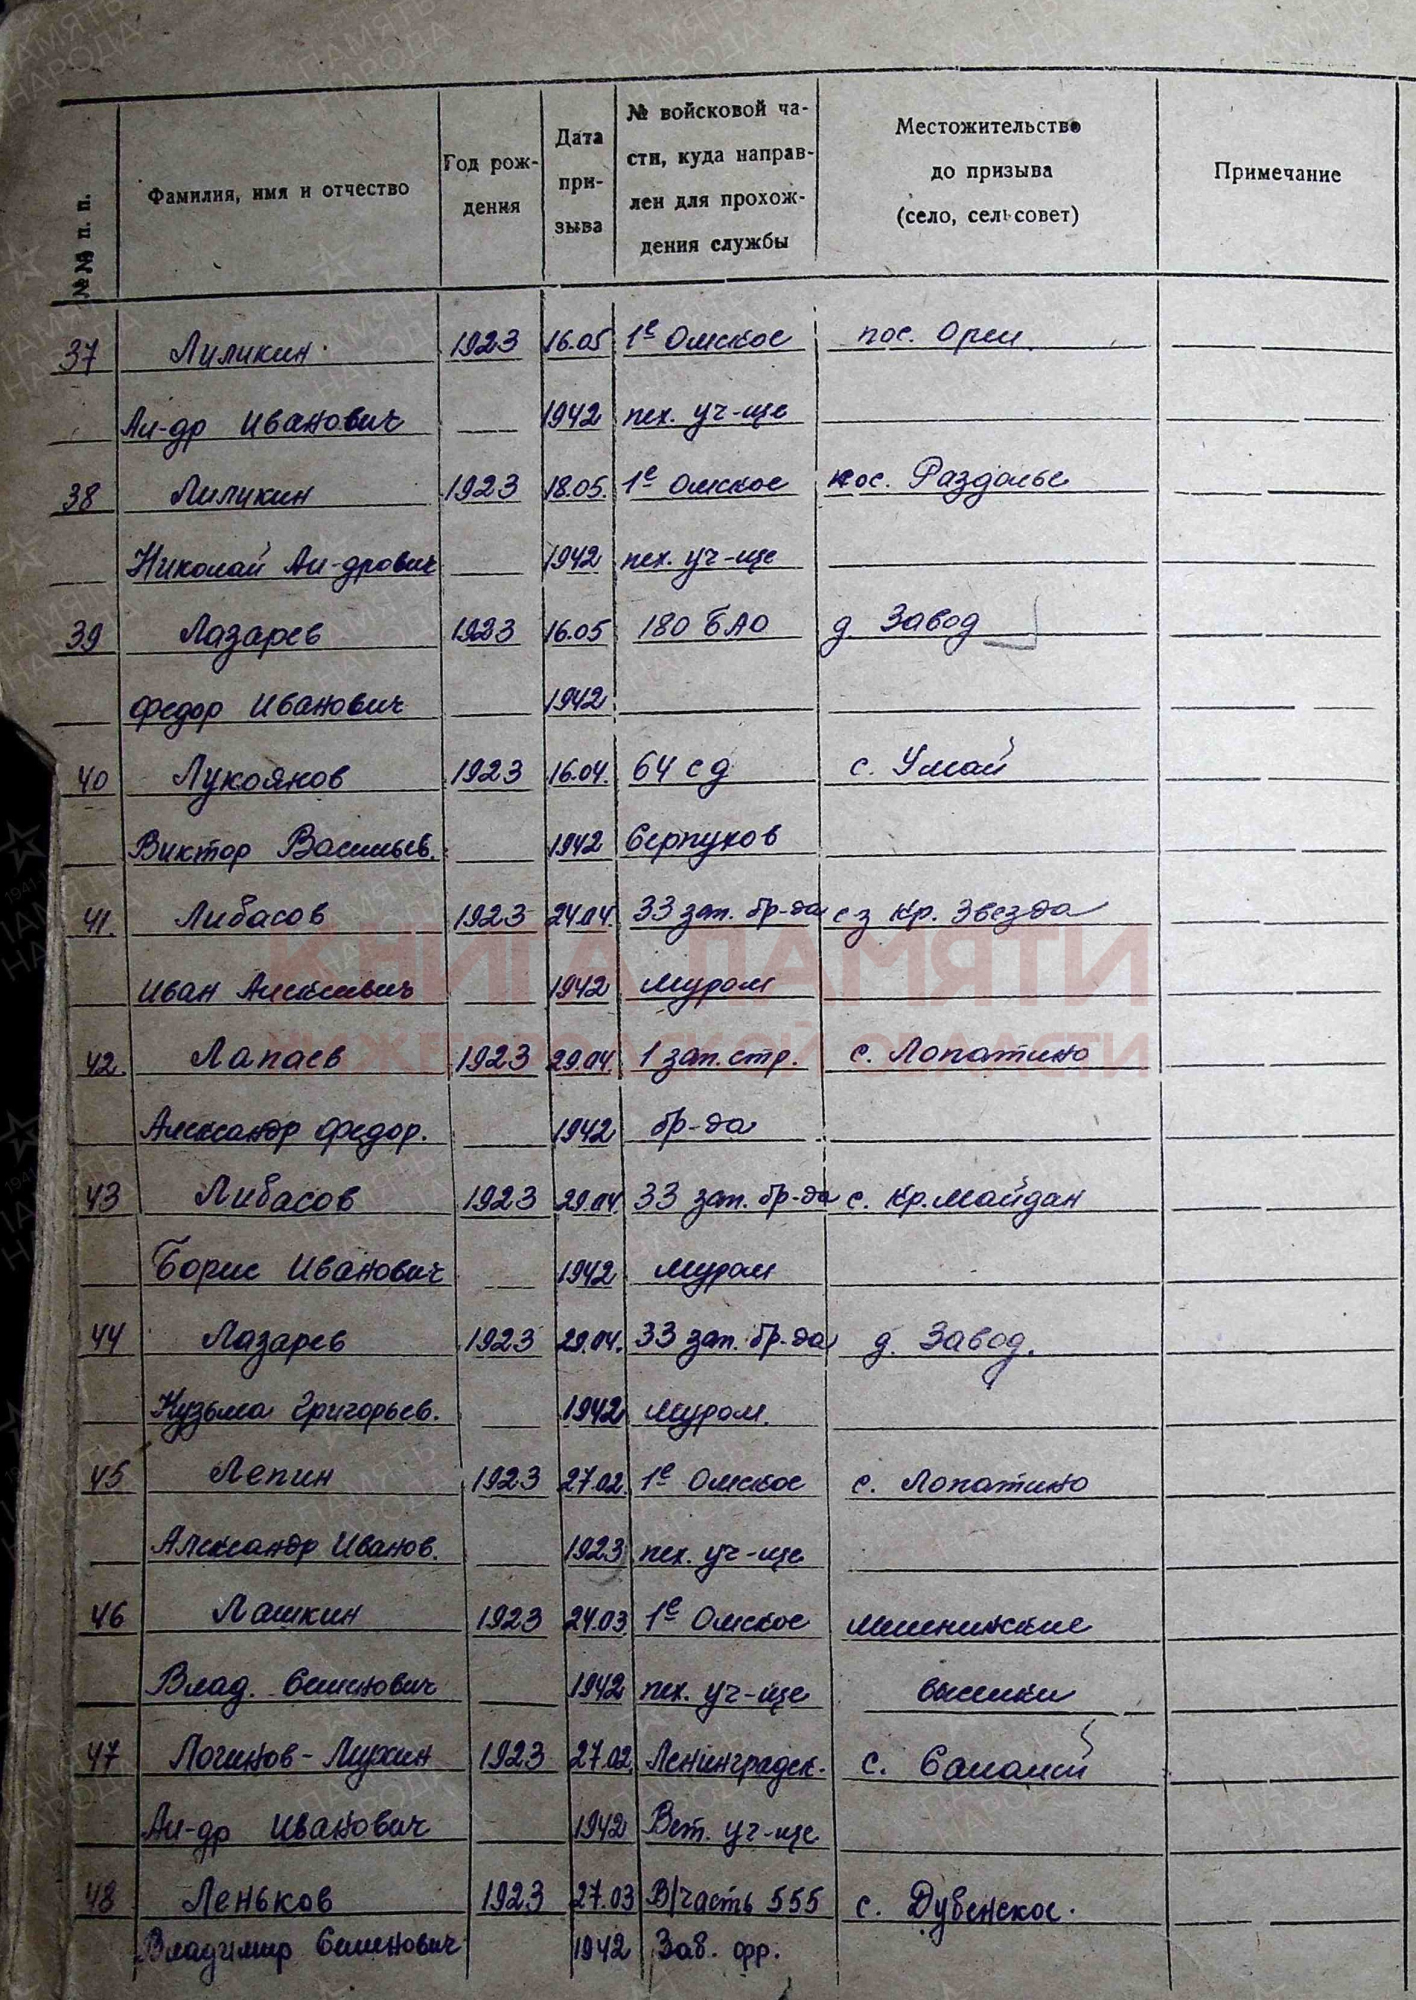 №№ п. п.
Фамилия, имя и отчество
Год рож-
дения
Дата
при-
зыва
№ войсковой ча-
сти, куда направ-
лен для прохож-
дения службы
Местожительство
до призыва
(село, сельсовет)
Примечание
37 Лиликин 1923 16.05 1е Омское пос. Орги
Ал-др Иванович 1942 пех. уч-ще
38 Лиликин 1923 18.05. 1е Омское пос. Раздолье
Николай Ал-дрович 1942 пех. уч-ще
39 Лазарев 1923 16.05 180 БАО д Завод
Федор Иванович 1942
40 Лукоянов 1923 16.04. 64 сд с. Умай
Виктор Васильев. 1942 Серпухов
41. Либасов 1923 24.04. 33 зап. бр-да с з Кр. Звезда
Иван Алексеевич 1942 Муром
42. Лапаев 1923 29.04. 1 зап. стр. с. Лопатино
Александр Федор. 1942 бр-да
43 Либасов 1923 29.04. 33 зап. бр-да с. Кр. Майдан
Борис Иванович 1942 Муром
44 Лазарев 1923 29.04. 33 зап. бр-да д. Завод.
Кузьма Григорьев. 1942 Муром.
45 Лепин 1923 27.02. 1е Омское с. Лопатино
Александр Иванов. 1923 пех. уч-ще
46 Лашкин 1923 24.03. 1е Омское
Влад. Семенович 1942 пех. уч-ще выселки
47 Логинов-Лихин 1923 27.02 Ленинградск. с.
Ал-др Иванович 1942 Вет. уч-ще
48 Леньков 1923 27.03 В/часть 555 с. Дубенское.
Владимир Семенович 1942 Зап. фр.
КНИГА ПАМЯТИ
НИЖЕГОРОДСКОЙ ОБЛАСТИ
ПАМЯТЬ
НАРОДА